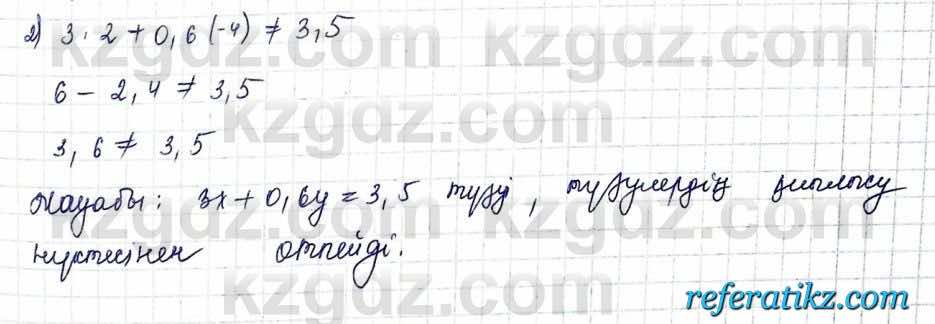 2) 3·2+0,6(-4) ≠ 3,5
6 - 2,4 ≠ 3,5
3,6 ≠ 3,5
Жауабы: 3x+0,6y=3,5 түзуі, түзулердің қиылысу
нүктесінен өтпейді.
kzgdz.com kzgdz.com
kzgdz.com
kzgdz.com kzgdz.com
kzgdz.com
referatikz.com